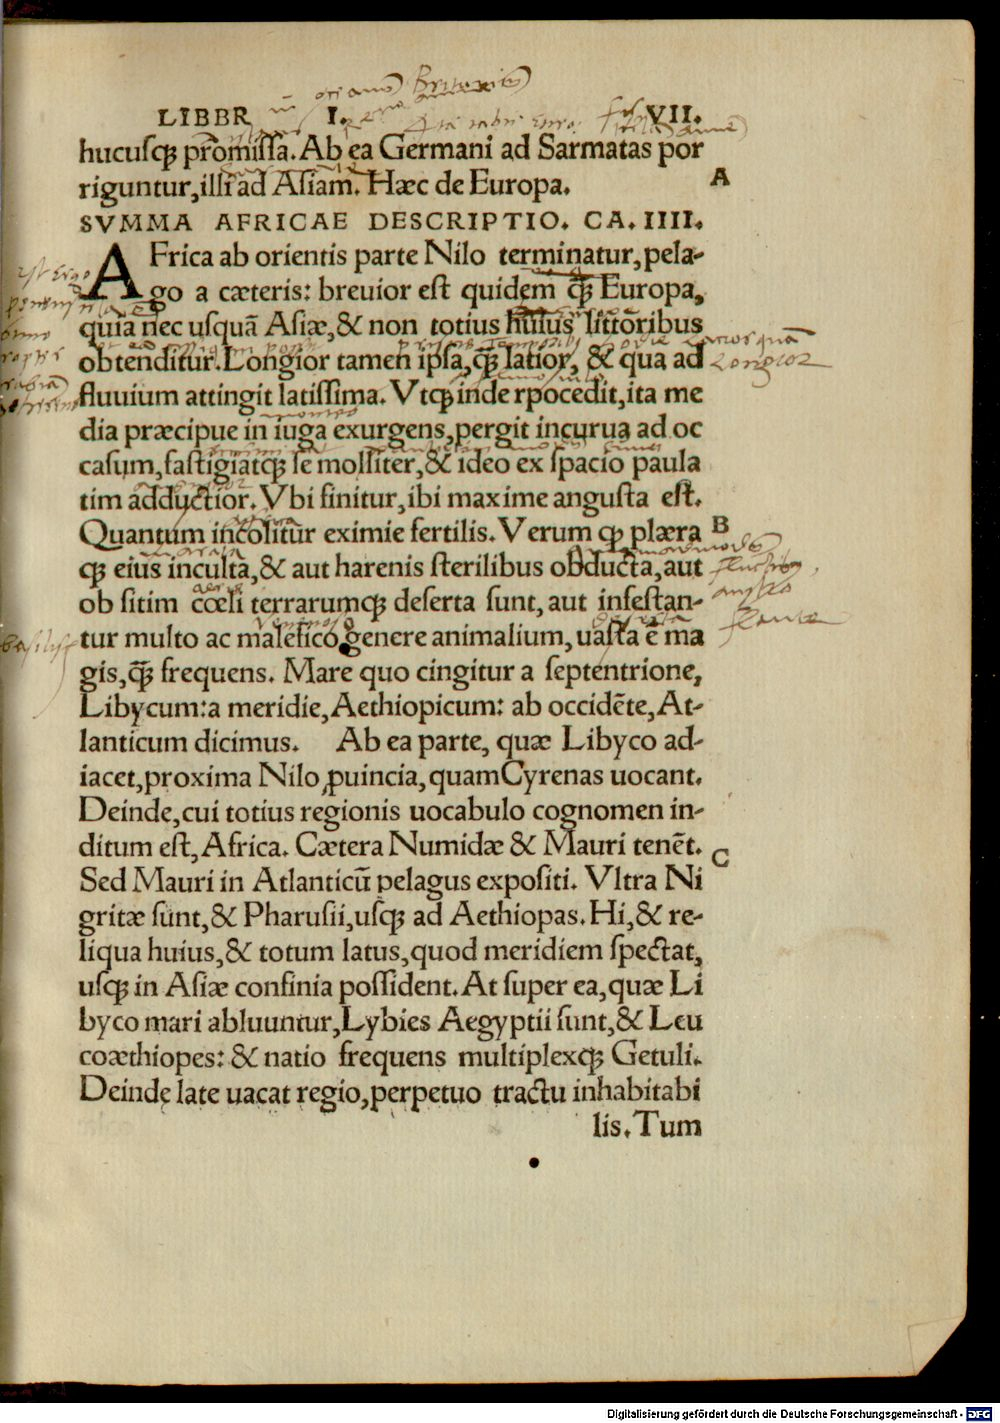 LIBBR I. VII.
hucusq; p̄romissa. Ab ea Germani ad Sarmatas por
riguntur, illi ad Asiam. Hæc de Europa.
A
SVMMA AFRICAE DESCRIPTIO. CA. IIII.
AFrica ab orientis parte Nilo terminatur, pela-
go a cæteris: breuior est quidem q̄; Europa,
quia nec usquā Asiæ, & non totius huius littoribus
obtenditur. Longior tamen ipsa, q̄; latior, & qua ad
Longior
fluuium attingit latissima. Vtq; inde rpocedit, ita me
dia præcipue in iuga exurgens, pergit incurua ad oc
casum, fastigiatq; se molliter, & ideo ex spacio paula
tim adductior. Vbi finitur, ibi maxime angusta est.
Quantum incolitur eximie fertilis. Verum q; plæra
B
q; eius inculta, & aut harenis sterilibus obducta, aut
ob sitim cœli terrarumq; deserta sunt, aut infestan-
tur multo ac malefico genere animalium, uasta ē ma
gis, q̄; frequens. Mare quo cingitur a septentrione,
Libycum: a meridie, Aethiopicum: ab occidēte, At-
lanticum dicimus. Ab ea parte, quæ Libyco ad-
iacet, proxima Nilo ꝓuincia, quam Cyrenas uocant.
Deinde, cui totius regionis uocabulo cognomen in-
ditum est, Africa. Cætera Numidæ & Mauri tenēt.
C
Sed Mauri in Atlanticū pelagus expositi. Vltra Ni
gritæ sunt, & Pharusii, usq; ad Aethiopas. Hi, & re-
liqua huius, & totum latus, quod meridiem spectat,
usq; in Asiæ confinia possident. At super ea, quæ Li
byco mari abluuntur, Lybies Aegyptii sunt, & Leu
coæthiopes: & natio frequens multiplexq; Getuli.
Deinde late uacat regio, perpetuo tractu inhabitabi
lis. Tum
Digitalisierung gefördert durch die Deutsche Forschungsgemeinschaft - DFG